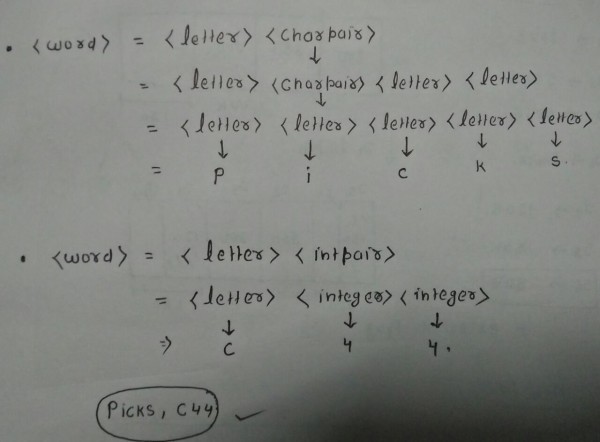 • <word> = <letter> <Charpair>
↓
= <letter> <Charpair> <letter> <letter>
↓
= <letter> <letter> <letter> <letter> <letter>
↓ ↓ ↓ ↓ ↓
= P i c k s.
• <word> = <letter> <intpair>
= <letter> <integer> <integer>
↓ ↓ ↓
⇒ C 4 4.
Picks, C44 ✓